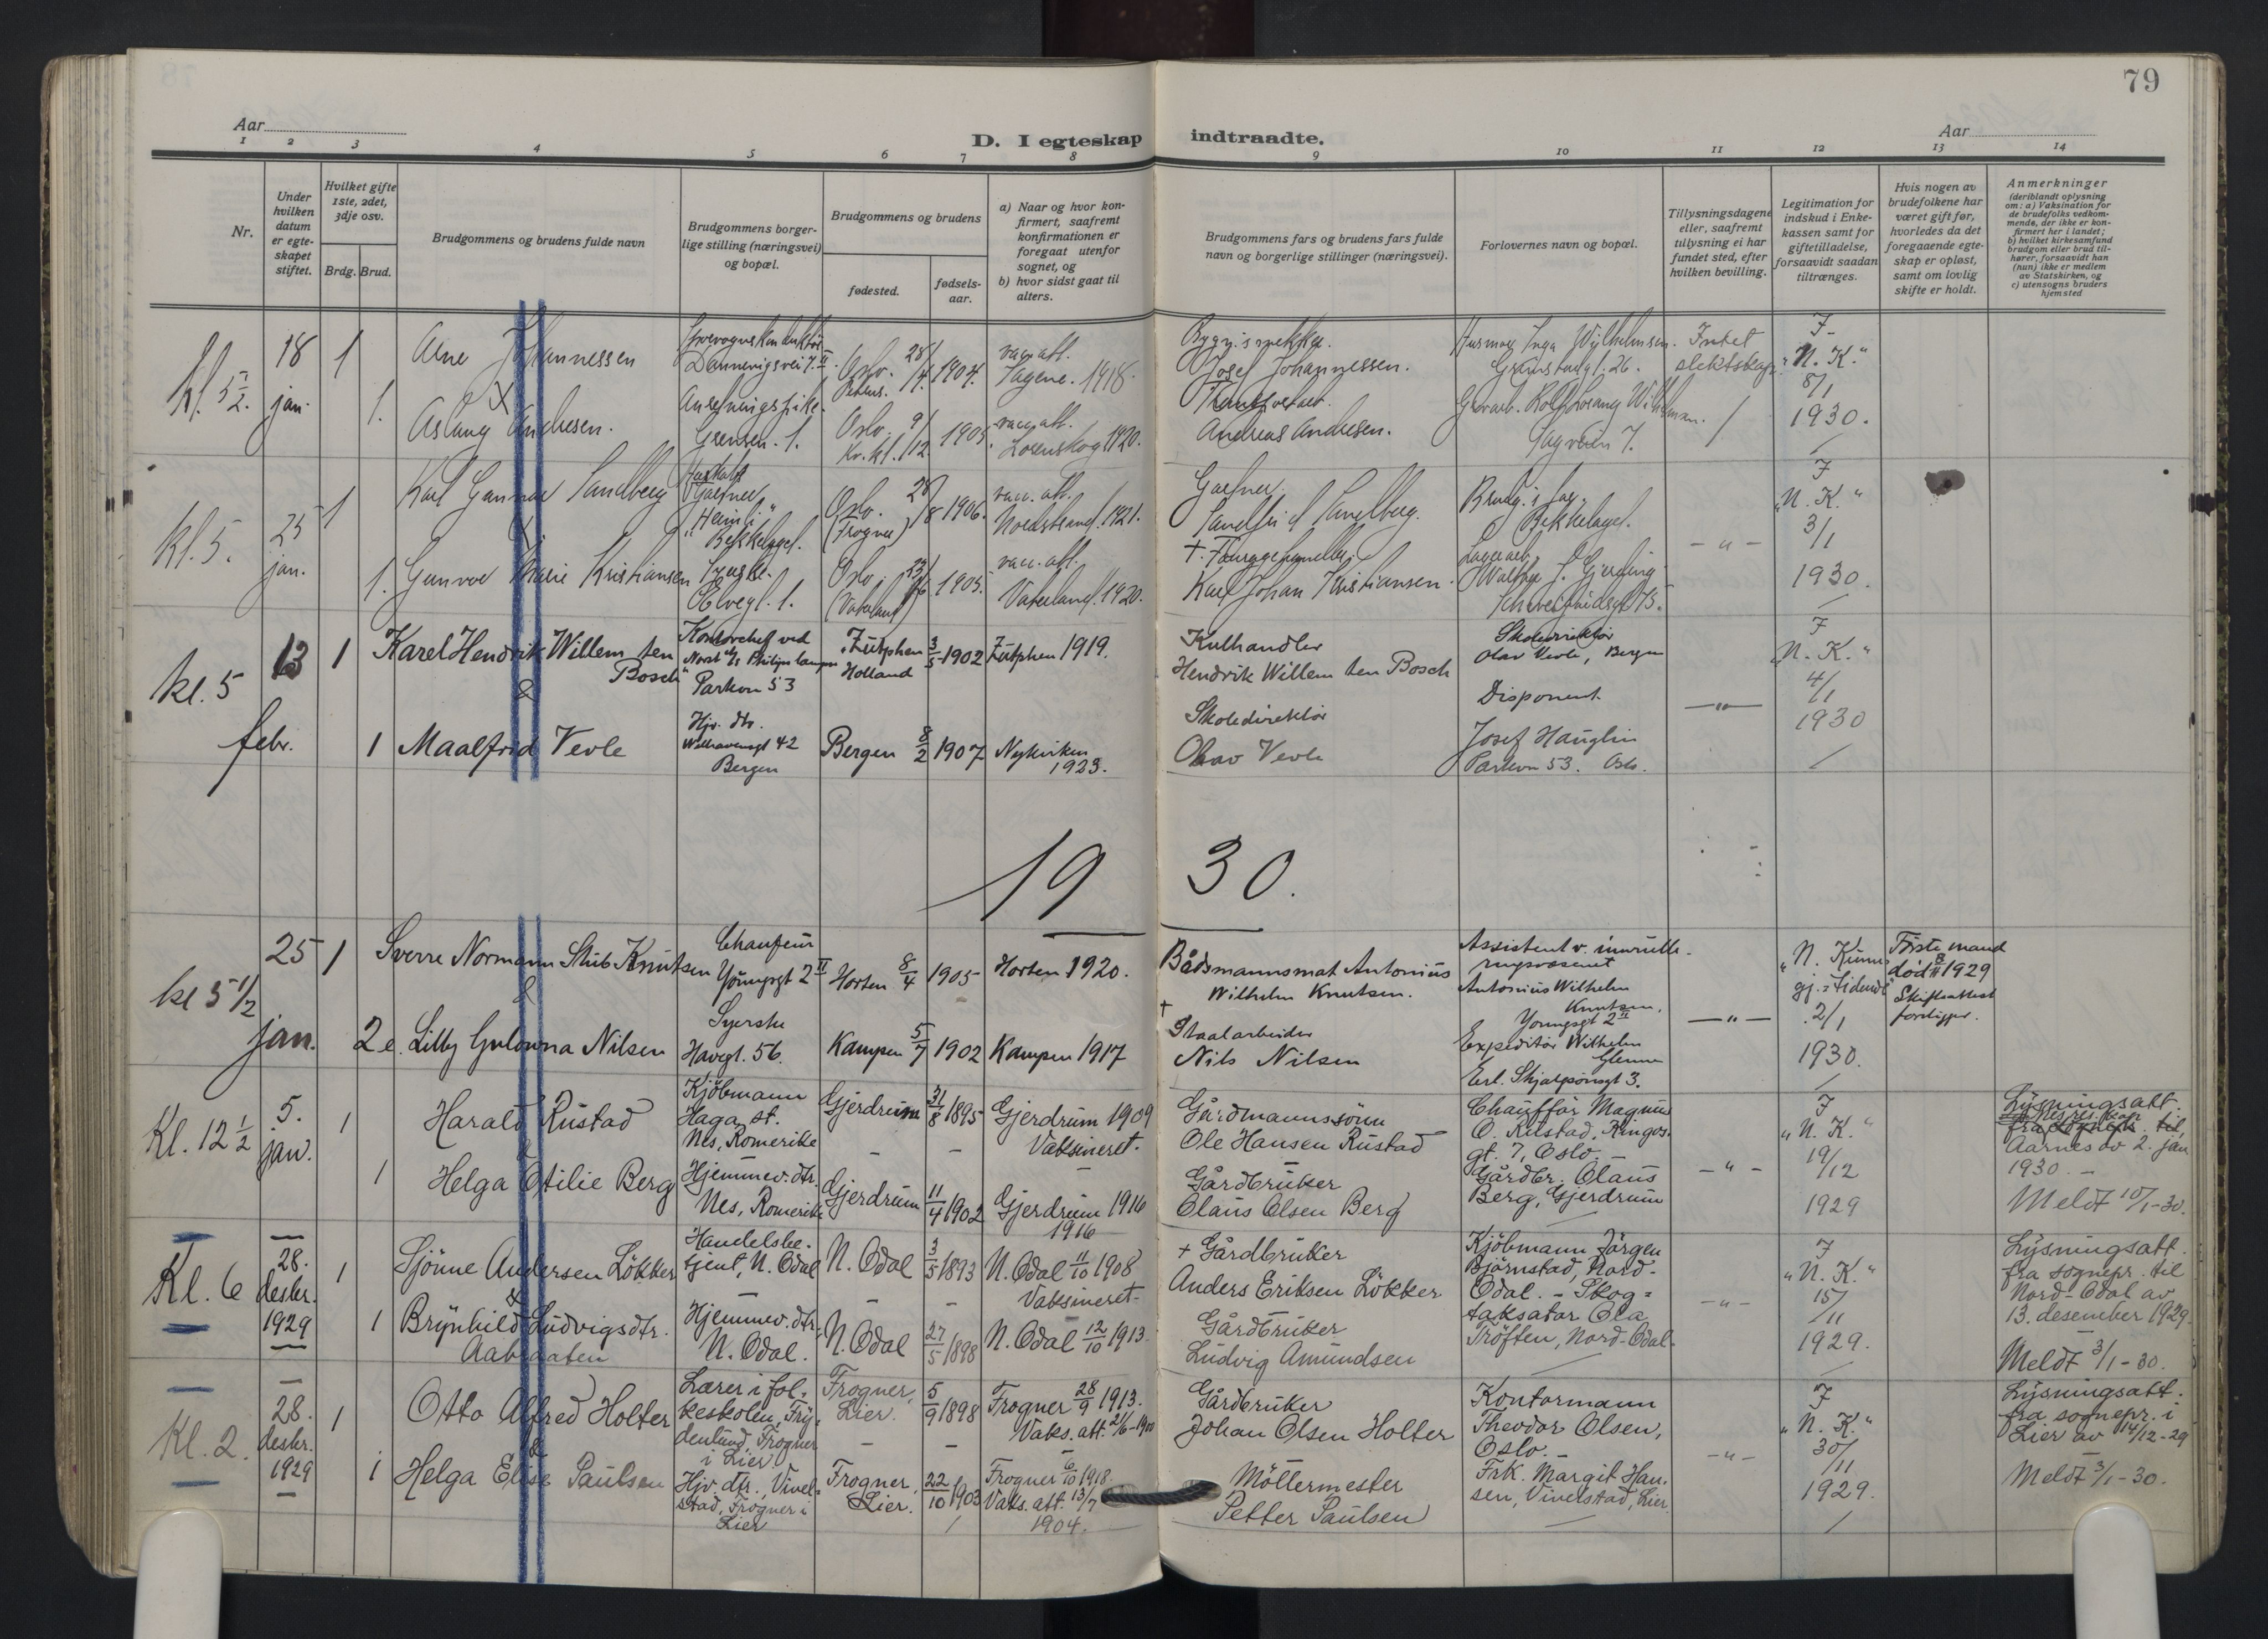 79
Aar
D. I egteskap indtraadte.
Aar
1 2 3 4 5 6 7 8 9 10 11 12 13 14
Nr.
Under hvilken datum er egte-skapet stiftet.
Hvilket gifte 1ste, 2det, 3dje osv.
Brdg. Brud.
Brudgommens og brudens fulde navn
Brudgommens borger-
lige stilling (næringsvei)
og bopæl.
Brudgommens og brudens
fødested.
fødsels-
aar.
a) Naar og hvor kon-
firmert, saafremt
konfirmationen er
foregaat utenfor
sognet, og
b) hvor sidst gaat til
alters.
Brudgommens fars og brudens fars fulde
navn og borgerlige stillinger (næringsvei).
Forlovernes navn og bopæl.
Tillysningsdagene
eller, saafremt
tillysning ei har
fundet sted, efter
hvilken bevilling.
Legitimation for
indskud i Enke-
kassen samt for
giftetilladelse,
forsaavidt saadan
tiltrænges.
Hvis nogen av
brudefolkene har
været gift før,
hvorledes da det
foregaaende egte-
skap er opløst,
samt om lovlig
skifte er holdt.
Anmerkninger
(deriblandt oplysning
om: a) Vaksination for
de brudefolks vedkom-
mende, der ikke er kon-
firmert her i landet;
b) hvilket kirkesamfund
brudgom eller brud til-
hører, forsaavidt han
(hun) ikke er medlem
av Statskirken, og
c) utensogns bruders
hjemsted
kl. 5 1/2.
18
jan.
1
Arne Johannessen
&
1.
Aslaug Andresen.
Oslo. 28/4 1904.
Petrus.
vacc. att.
Sagene. 1918.
Grensen. 1.
Oslo. 9/12 1905.
vacc. att.
Lorenskog 1920.
Josef Johannessen.
Andreas Andresen.
Grimstadgt. 26.
Sagveien 7.
Intet
slektskap.
F
"N. K."
8/1
1930.
kl. 5.
25
jan.
1
Karl Gunnar Sandberg
&
1. Gunvor Marie Kristiansen
Gartner
"Heimli"
Bekkelaget.
Oslo. 28/8 1906.
(Frogner)
vacc. att.
Nordstrand. 1921.
Elvegt. 1.
Oslo. 23/6 1905.
(Vaterland)
vacc. att.
Vaterland. 1920.
Gartner.
Karl Johan Kristiansen.
Brudg.s far.
Bekkelaget.
Schweigaardsgt 75.
— " —
F
"N. K."
3/1
1930.
kl. 5
13
febr.
1
Karel Hendrik Willem ten
Bosch
&
1 Maalfrid Vevle
Kontorchef ved
Norsk A/S Philips lampe
Parkvn 53
Zütphen 3/5 1902
Holland
Zütphen 1919.
Hjv. dtr.
Welhavensgt 42
Bergen
Bergen 8/2 1907
Nykirken
1923.
Kulhandler
Hendrik Willem ten Bosch
Skoledirektør
Olav Vevle
Skoledirektør
Olav Vevle, Bergen
Disponent
Josef Hauglin
Parkvn 53. Oslo.
— " —
F
"N. K."
4/1
1930
19 30.
kl 5 1/2
25
jan.
1
Sverre Normann Stub Knutsen
&
2 e. Lilly Gulowna Nilsen
Chaufeur
Youngsgt 2 II
Horten 8/4 1905
Horten 1920.
Syerske
Havegt. 56.
Kampen 5/7 1902
Kampen 1917
Bådsmannsmat Antonius
Wilhelm Knutsen.
+
Staalarbeider
Nils Nilsen
Antonius Wilhelm
Knutsen,
Youngsgt 2 II
Expeditør Wilhelm
Glenne
Erl. Skjalgsonsgt 3.
— " —
2/1
1930.
Første mand
død 8/11 1929
Skifteattest
foreligger.
Kl. 12 1/2
5.
jan.
1
Harald Rustad
&
1
Helga Otilie Berg
Kjöbmann
Haga st.
Nes, Romerike
Gjerdrum 31/8 1895
Gjerdrum 1909
Vaksineret.
Hjemmev. dtr.
Nes, Romerike
Gjerdrum 11/4 1902
Gjerdrum 1916
1916
Gårdmannssönn
Ole Hansen Rustad
Gårdbruker
Olaus Olsen Berg
Chauffør Magnus
O. Rustad, Ringos-
gt. 7, Oslo. —
Gårdbr. Olaus
Berg, Gjerdrum
— " —
F
"N. K."
19/12
1929
Lysningsatt.
Aarnes av 2. jan
1930. —
Meldt 10/1-30.
Kl. 6
28.
desbr.
1929
1
Sjönne Andersen Lökker
&
1 Brynhild Ludvigsdtr.
Aabraaten
Handelsbe-
tjent, N. Odal
N. Odal 3/5 1893
N. Odal 11/10 1908
Vaksineret.
Hjemmev. dtr.
N. Odal.
N. Odal 27/5 1898
N. Odal 12/10 1913.
+ Gårdbruker
Anders Eriksen Lökker
Gårdbruker
Ludvig Amundsen
Kjöbmann Jörgen
Björnstad, Nord-
Odal. - Skog-
taksator Ola
Tröften, Nord-Odal.
— " —
F
"N. K."
15/11
1929.
Lysningsatt.
fra sognepr. til
Nord-Odal av
13. desember 1929.
Meldt 3/1-30.
Kl. 2.
28.
desbr.
1929
1
Otto Alfred Holter
&
1 Helga Elise Paulsen
Lærer i fol-
keskolen, Fry-
denlund, Frogner
i Lier
Frogner,
Lier.
5/9 1898
Frogner 28/9 1913.
Vaks. att. 2/6-1900
Hjv. dtr., Vivel-
stad, Frogner i
Lier
Frogner,
Lier.
22/10 1903
Frogner 6/10 1918.
Vaks. att. 13/7
1904.
Gårdbruker
Johan Olsen Holter
Möllermester
Petter Paulsen
Kontormann
Theodor Olsen,
Oslo. —
Frk. Margit Han-
sen, Vivelstad, Lier
— " —
F
"N. K."
30/11
1929.
Lysningsatt.
fra sognepr. i
Lier av 14/12-29
Meldt 3/1-30.